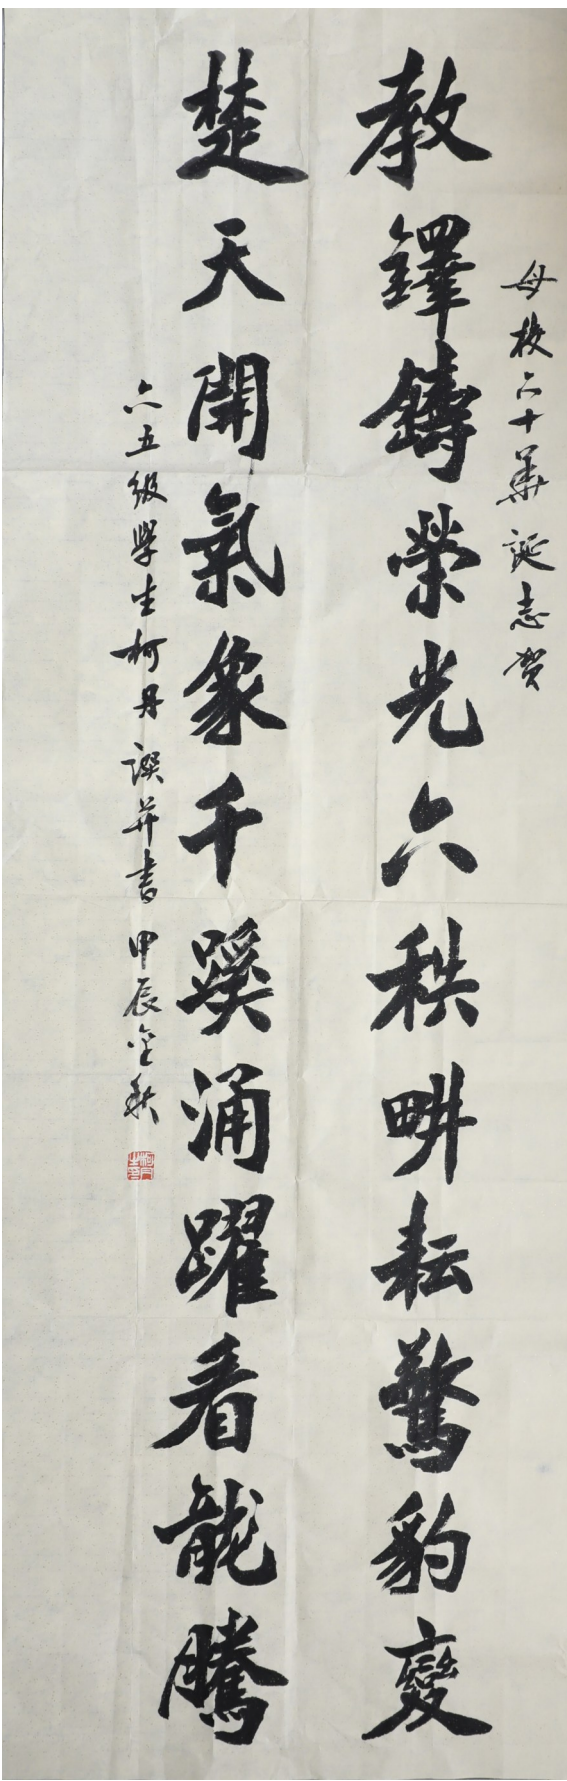 母校六十華誕志贺
教鐸鑄榮光六秩畊耘驚豹變
楚天開氣象千蹊涌躍看龍騰
六五级學生柯丹譔并書甲辰金秋